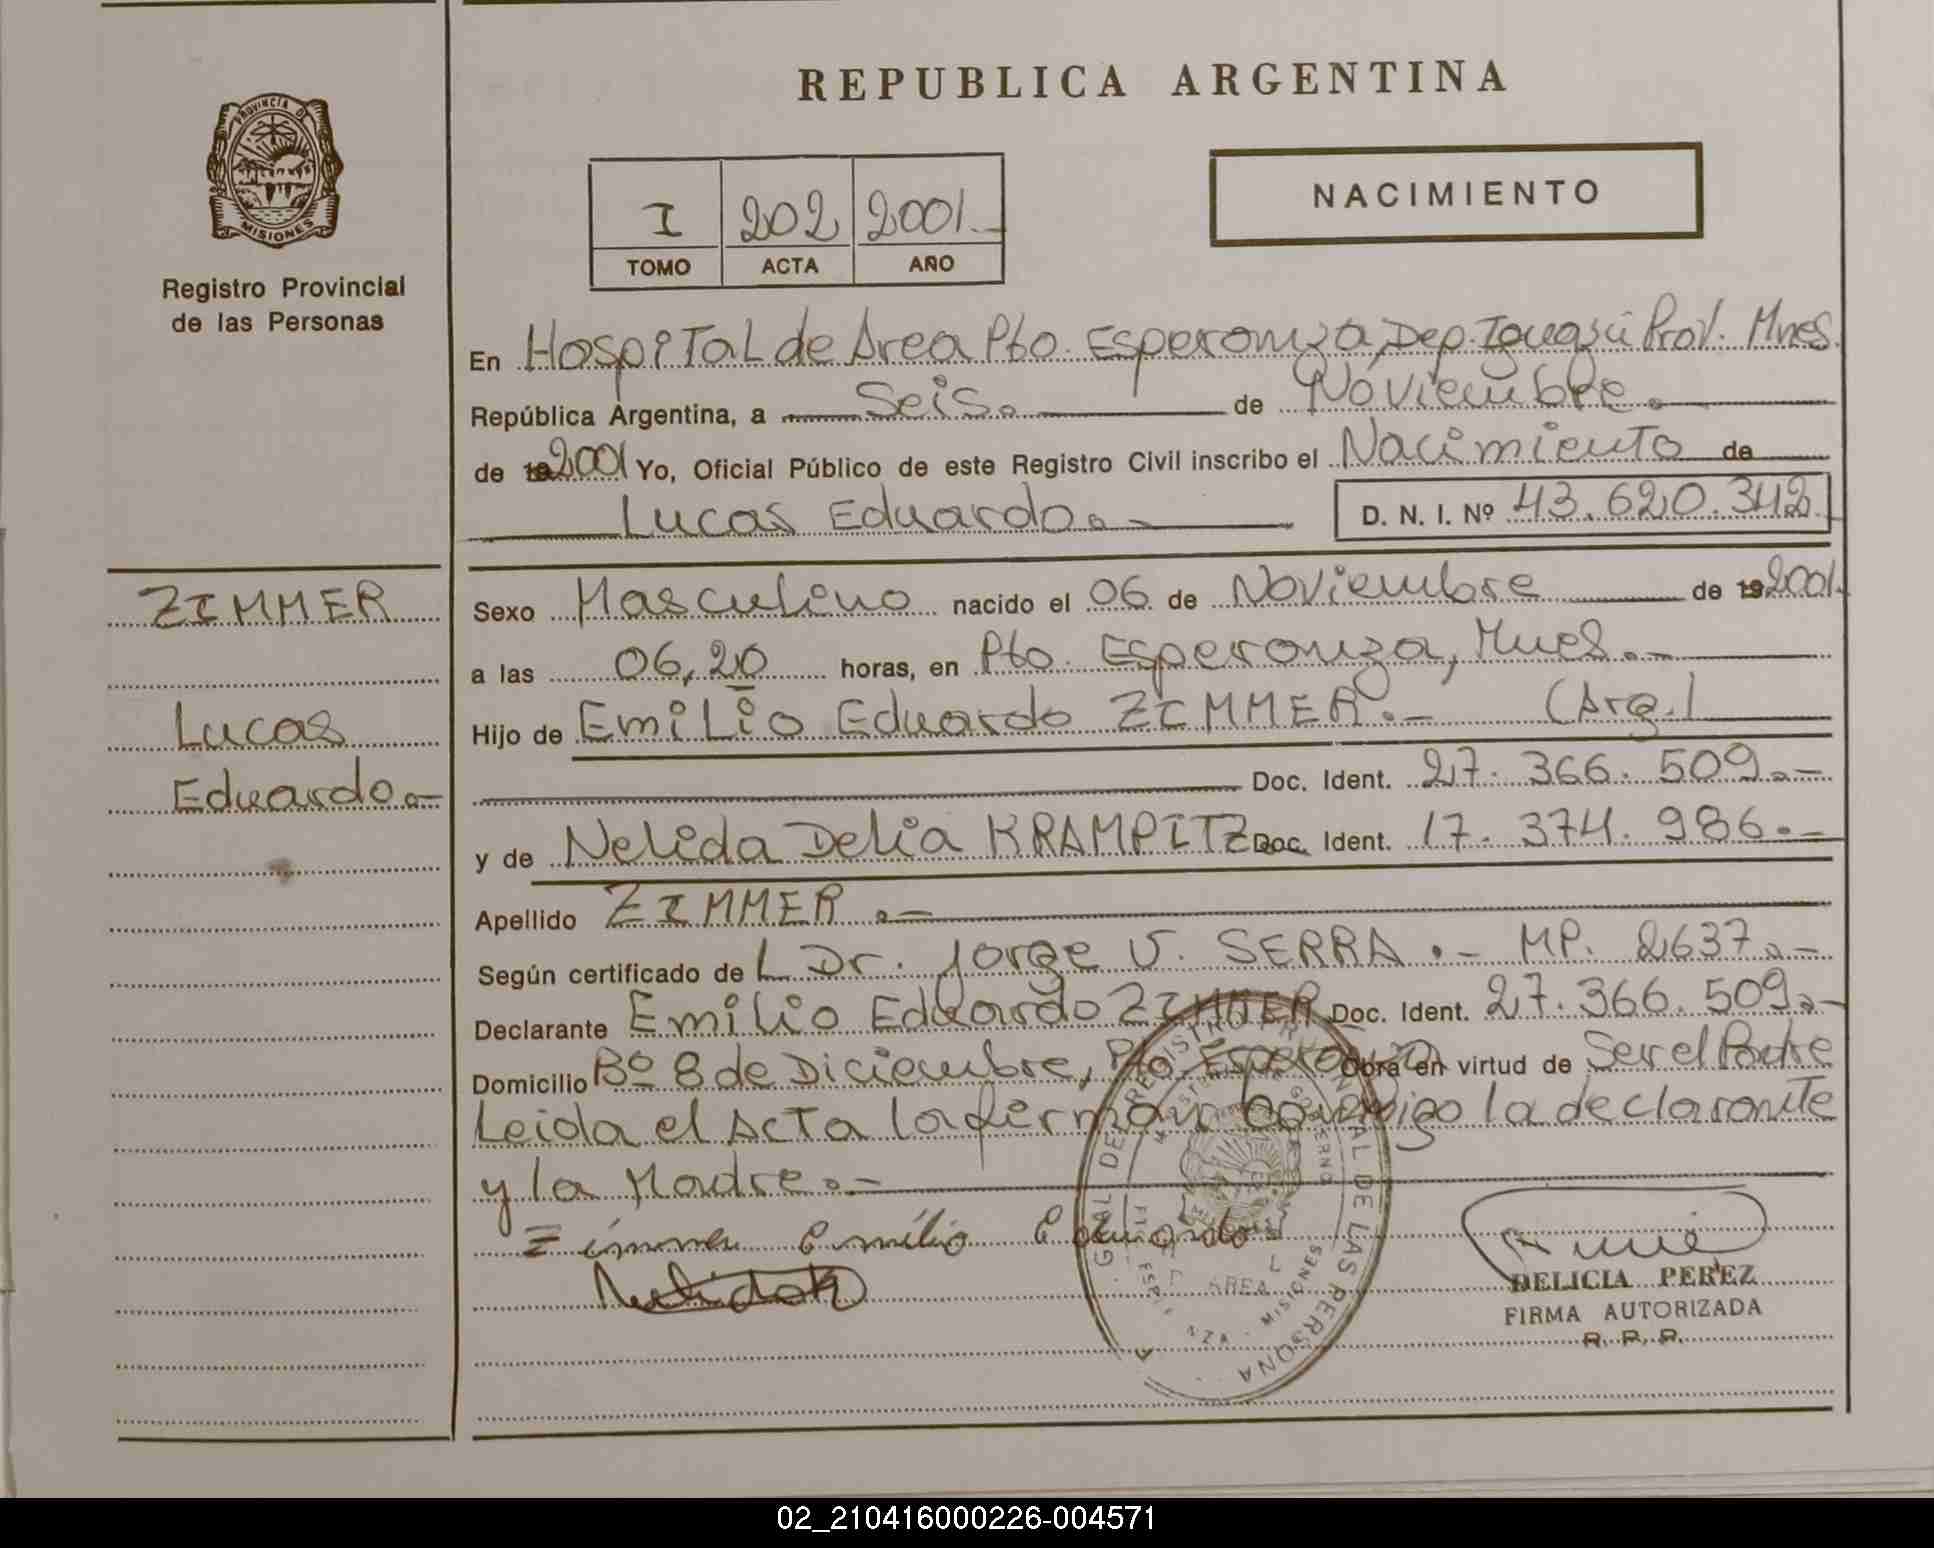 REPUBLICA ARGENTINA
PROVINCIA DE
MISIONES
Registro Provincial
de las Personas
I 202 2001.-
TOMO ACTA AÑO
NACIMIENTO
En Hospital de Area Pto. Esperanza, Dep. Iguazú Prov. Mnes.
República Argentina, a Seis.- de Noviembre.-
de 192001 Yo, Oficial Público de este Registro Civil inscribo el Nacimiento de
Lucas Eduardo.-
D. N. I. Nº 43.620.342
ZIMMER
Lucas
Eduardo.-
Sexo Masculino nacido el 06 de Noviembre de 192001.
a las 06,20 horas, en Pto. Esperanza, Mnes.-
Hijo de Emilio Eduardo ZIMMER.- (Arg.)
Doc. Ident. 27.366.509.-
y de Nelida Delia KRAMPITZ Doc. Ident. 17.374.986.-
Apellido ZIMMER.-
Según certificado de L Dr. Jorge V. SERRA.- MP. 2637.-
Declarante Emilio Eduardo ZIMMER Doc. Ident. 27.366.509.-
Domicilio Bº 8 de Diciembre, Pto. Esperanza Obra en virtud de Ser el Padre
Leida el Acta la firman conmigo la declarante
y la Madre.-
Zimmer Emilio Eduardo
DELICIA PEREZ
FIRMA AUTORIZADA
R. P. P.
02_210416000226-004571